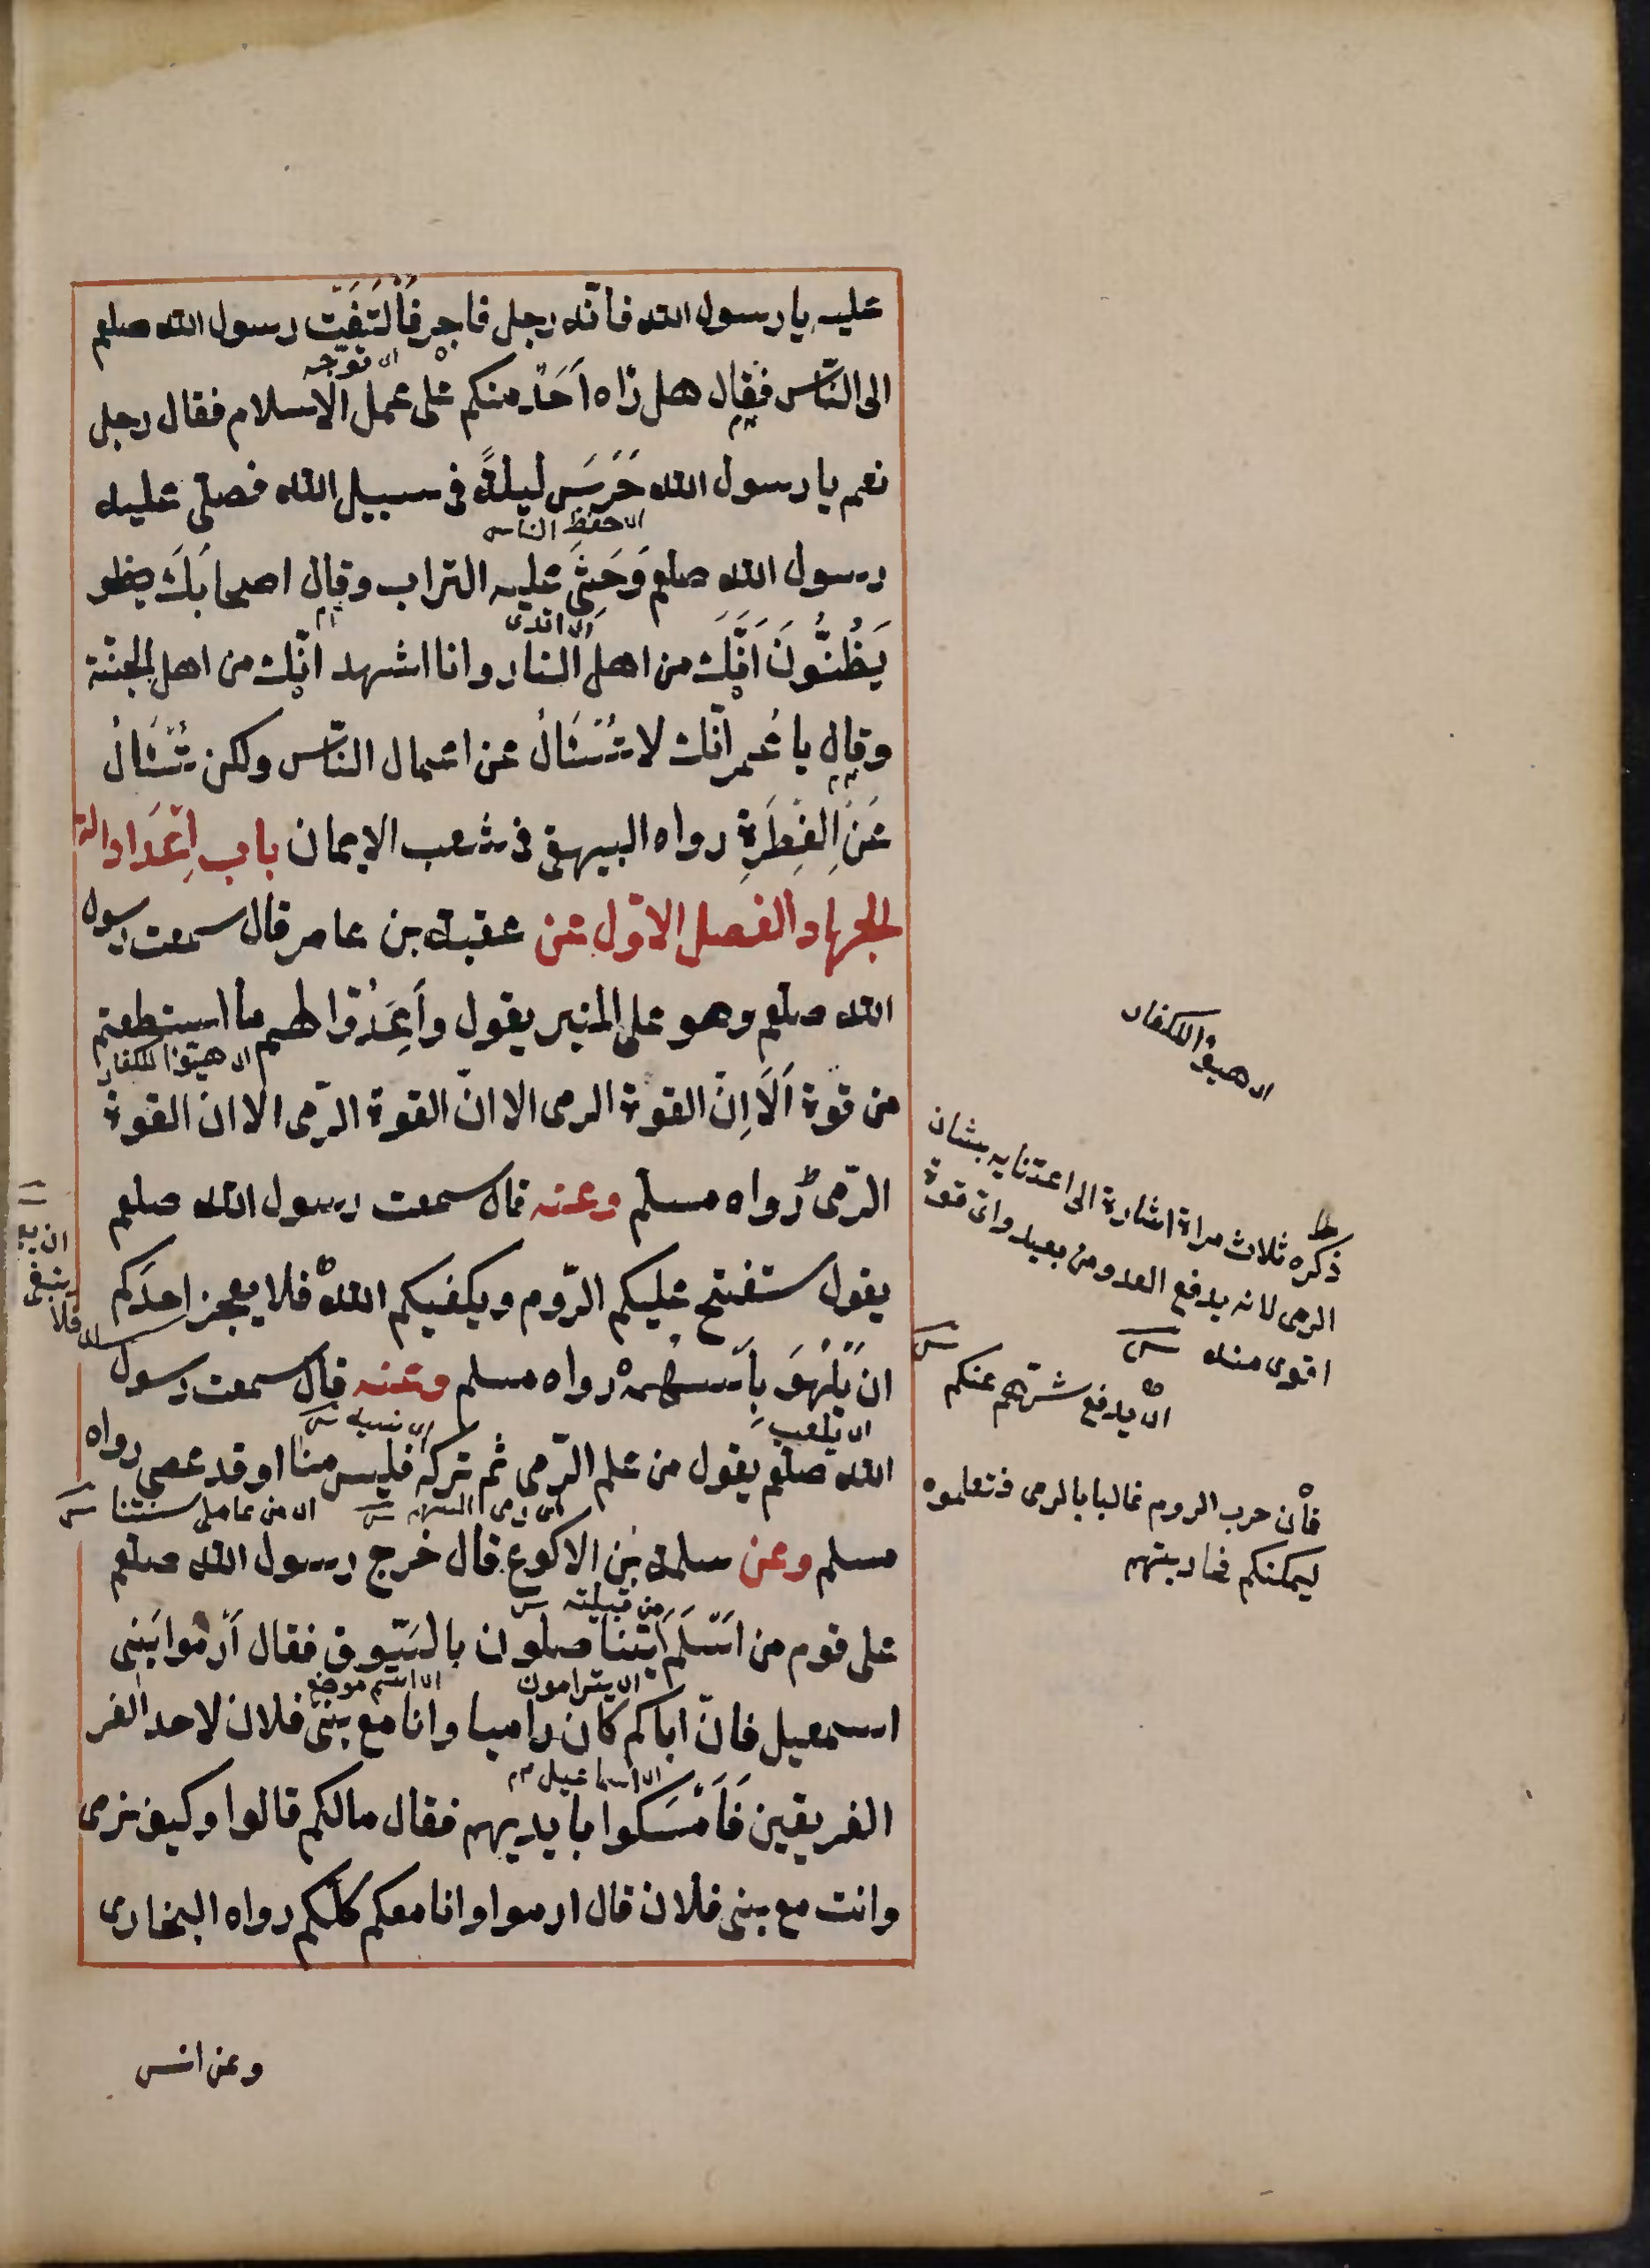 عليه يا رسول الله فانّه رجل فاجر فَالْتَفَتَ رسول الله صلعم
اى توجّه
الى النّاس فقال هل رٰاه اَحَدٌ منكم على عمل الاسلام فقال رجل
نعم يا رسول الله حَرَسَ ليلةً فى سبيل الله فصلى عليه
اى حفظ الناس
رسول الله صلعم وَحَثَى عليه التراب وقال اصحابَكَ يظنو
يَظُنُّونَ اَنَّكَ من اهل النار وانا اشهد انّك من اهل الجنّة
وقال يا عُمر انّك لا تُسْئَالُ عن اعمال النّاس ولكن تُسْئَالُ
عَنِ الفِطَرِة رواه البيهقى فى شعب الايمان باب اِعْدَاد الة
الجهاد الفصل الاوّل عن عقبة بن عامر قال سمعت رسول
الله صلعم وهو على المنبر يقول وَاَعِدُّوا لهم ما استطعتم
اى هيئوا للكفار
من قوة اَلَا اِنّ القوة الرمى الا انّ القوة الرّمى الا ان القوة
الرّمى رواه مسلم وعنه قال سمعت رسول الله صلعم
يقول ستفتح عليكم الرّوم ويكفيكم الله فلا يعجز احدَكم
ان يَّلْهُوَ بِاَسْهُمِهْ رواه مسلم وعنه قال سمعت رسول
اى يلعب
الله صلعم يقول من علم الرّمى ثم تركه فليس منا او قد عصى رواه
اى رمى السهم
اى من عاملى سنتنا
مسلم وعن سلمة بن الاكوع قال خرج رسول الله صلعم
على قوم من اَسْلَمَ يتناصلون بالسّوق فقال اَرْموا بَنِى
من قبيلته
اى يترامون
اى اسم موضع
اسمعيل فانّ اباكم كان راميا وانا مع بنى فلان لاحد الفر
اى اسماعيل
الفريقين فَاَمْسَكوا بايديهم فقال مالكم قالوا وكيف نرمى
وانت مع بنى فلان قال ارموا وانا معكم كلّكم رواه البخارى
وعن انس
اى هيئوا للكفار
ذكره ثلاث مراة اشارة الى اعتنايه بشان
الرمى لانه يدفع العدو من بعيد واى قوة
اقوى منه
اى يدفع شرّهم عنكم
فأن حرب الروم غالبا بالرمى فتعلموه
ليمكنكم محاربتهم
ينبغى
فلا